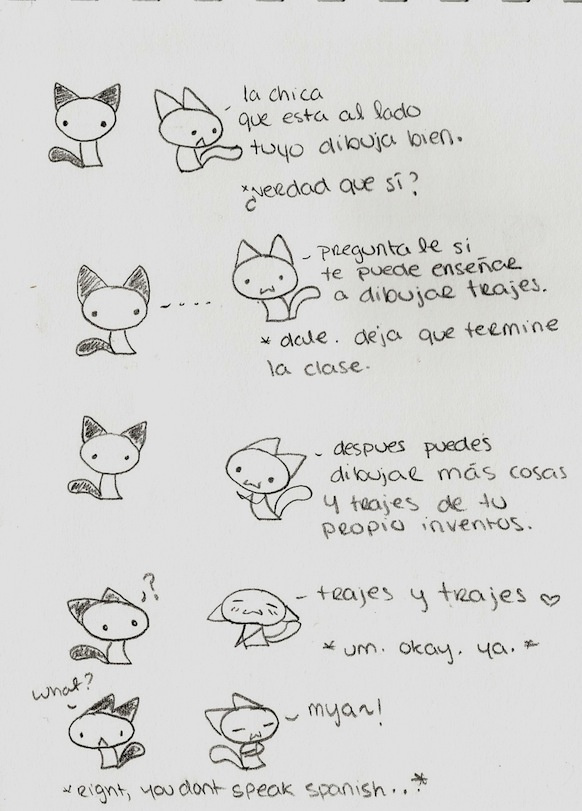 la chica
que esta al lado
tuyo dibuja bien.
*¿verdad que sí?
- . . . .
pregunta le si
te puede enseñar
a dibujar trajes.
* dale. deja que termine
la clase.
despues puedes
dibujar más cosas
y trajes de tu
propio inventos.
?
trajes y trajes ♡
* um. okay. ya. *
what?
myan!
*right, you dont speak spanish...*